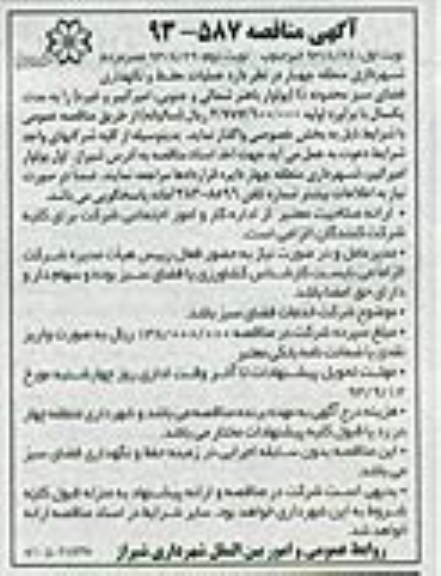 آگهی مناقصه ۵۸۷-۹۳
شهرداری منطقه چهار در نظر دارد عملیات حفظ و نگهداری
فضای سبز محدوده بلوار باهنر شمالی و جنوبی، امیرکبیر و غیره را به مدت
یکسال با برآورد اولیه ریال (سالیانه) از طریق مناقصه عمومی
با شرایط ذیل به بخش خصوصی واگذار نماید. بدینوسیله از کلیه شرکتهای واجد
شرایط دعوت به عمل می آید جهت اخذ اسناد مناقصه به آدرس شیراز، اول بلوار
امیرکبیر، شهرداری منطقه چهار دایره قراردادها مراجعه نمایند. ضمنا در صورت
نیاز به اطلاعات بیشتر شماره تلفن آماده پاسخگویی می باشد.
• ارائه صلاحیت معتبر از اداره کار و امور اجتماعی شرکت برای کلیه
شرکت کنندگان الزامی است.
• مدیرعامل و در صورت نیاز به حضور فعال رییس هیأت مدیره شرکت
الزاما می بایست کارشناس کشاورزی یا فضای سبز بوده و سهام دار و
دارای حق امضا باشد.
• موضوع شرکت خدمات فضای سبز باشد.
• مبلغ سپرده شرکت در مناقصه ریال به صورت واریز
نقدی یا ضمانت نامه بانکی معتبر
• مهلت تحویل پیشنهادات تا آخر وقت اداری روز چهارشنبه مورخ
• هزینه درج آگهی به عهده برنده مناقصه می باشد و شهرداری منطقه چهار
در رد یا قبول کلیه پیشنهادات مختار می باشد.
• این مناقصه بدون سابقه اجرایی در زمینه حفظ و نگهداری فضای سبز
می باشد.
• بدیهی است شرکت در مناقصه و ارائه پیشنهاد به منزله قبول کلیه
شروط به این شهرداری خواهد بود. سایر شرایط در اسناد مناقصه ارائه
خواهد شد.
روابط عمومی و امور بین الملل شهرداری شیراز